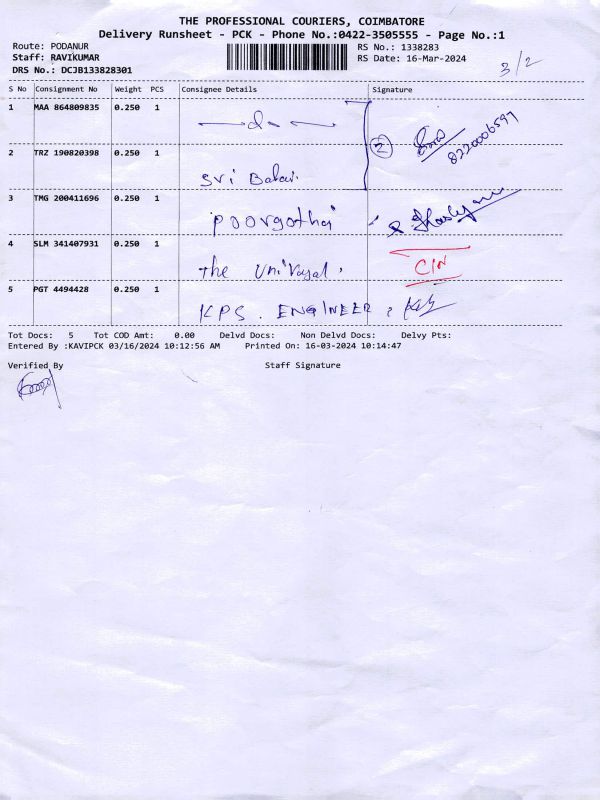 THE PROFESSIONAL COURIERS, COIMBATORE
Delivery Runsheet - PCK - Phone No.:0422-3505555 - Page No.:1
Route: PODANUR
RS No.: 1338283
Staff: RAVIKUMAR
RS Date: 16-Mar-2024
DRS No.: DCJB133828301
3/2
S No Consignment No Weight PCS Consignee Details Signature
1 MAA 864809835 0.250 1
2 8220006597
2 TRZ 190820398 0.250 1 Sri Balaji
3 TMG 200411696 0.250 1 Poorgothai
4 SLM 341407931 0.250 1 The Univayal, C/N
5 PGT 4494428 0.250 1 KPS. ENGINEER
Tot Docs: 5 Tot COD Amt: 0.00 Delvd Docs: Non Delvd Docs: Delvy Pts:
Entered By :KAVIPCK 03/16/2024 10:12:56 AM Printed On: 16-03-2024 10:14:47
Verified By Staff Signature